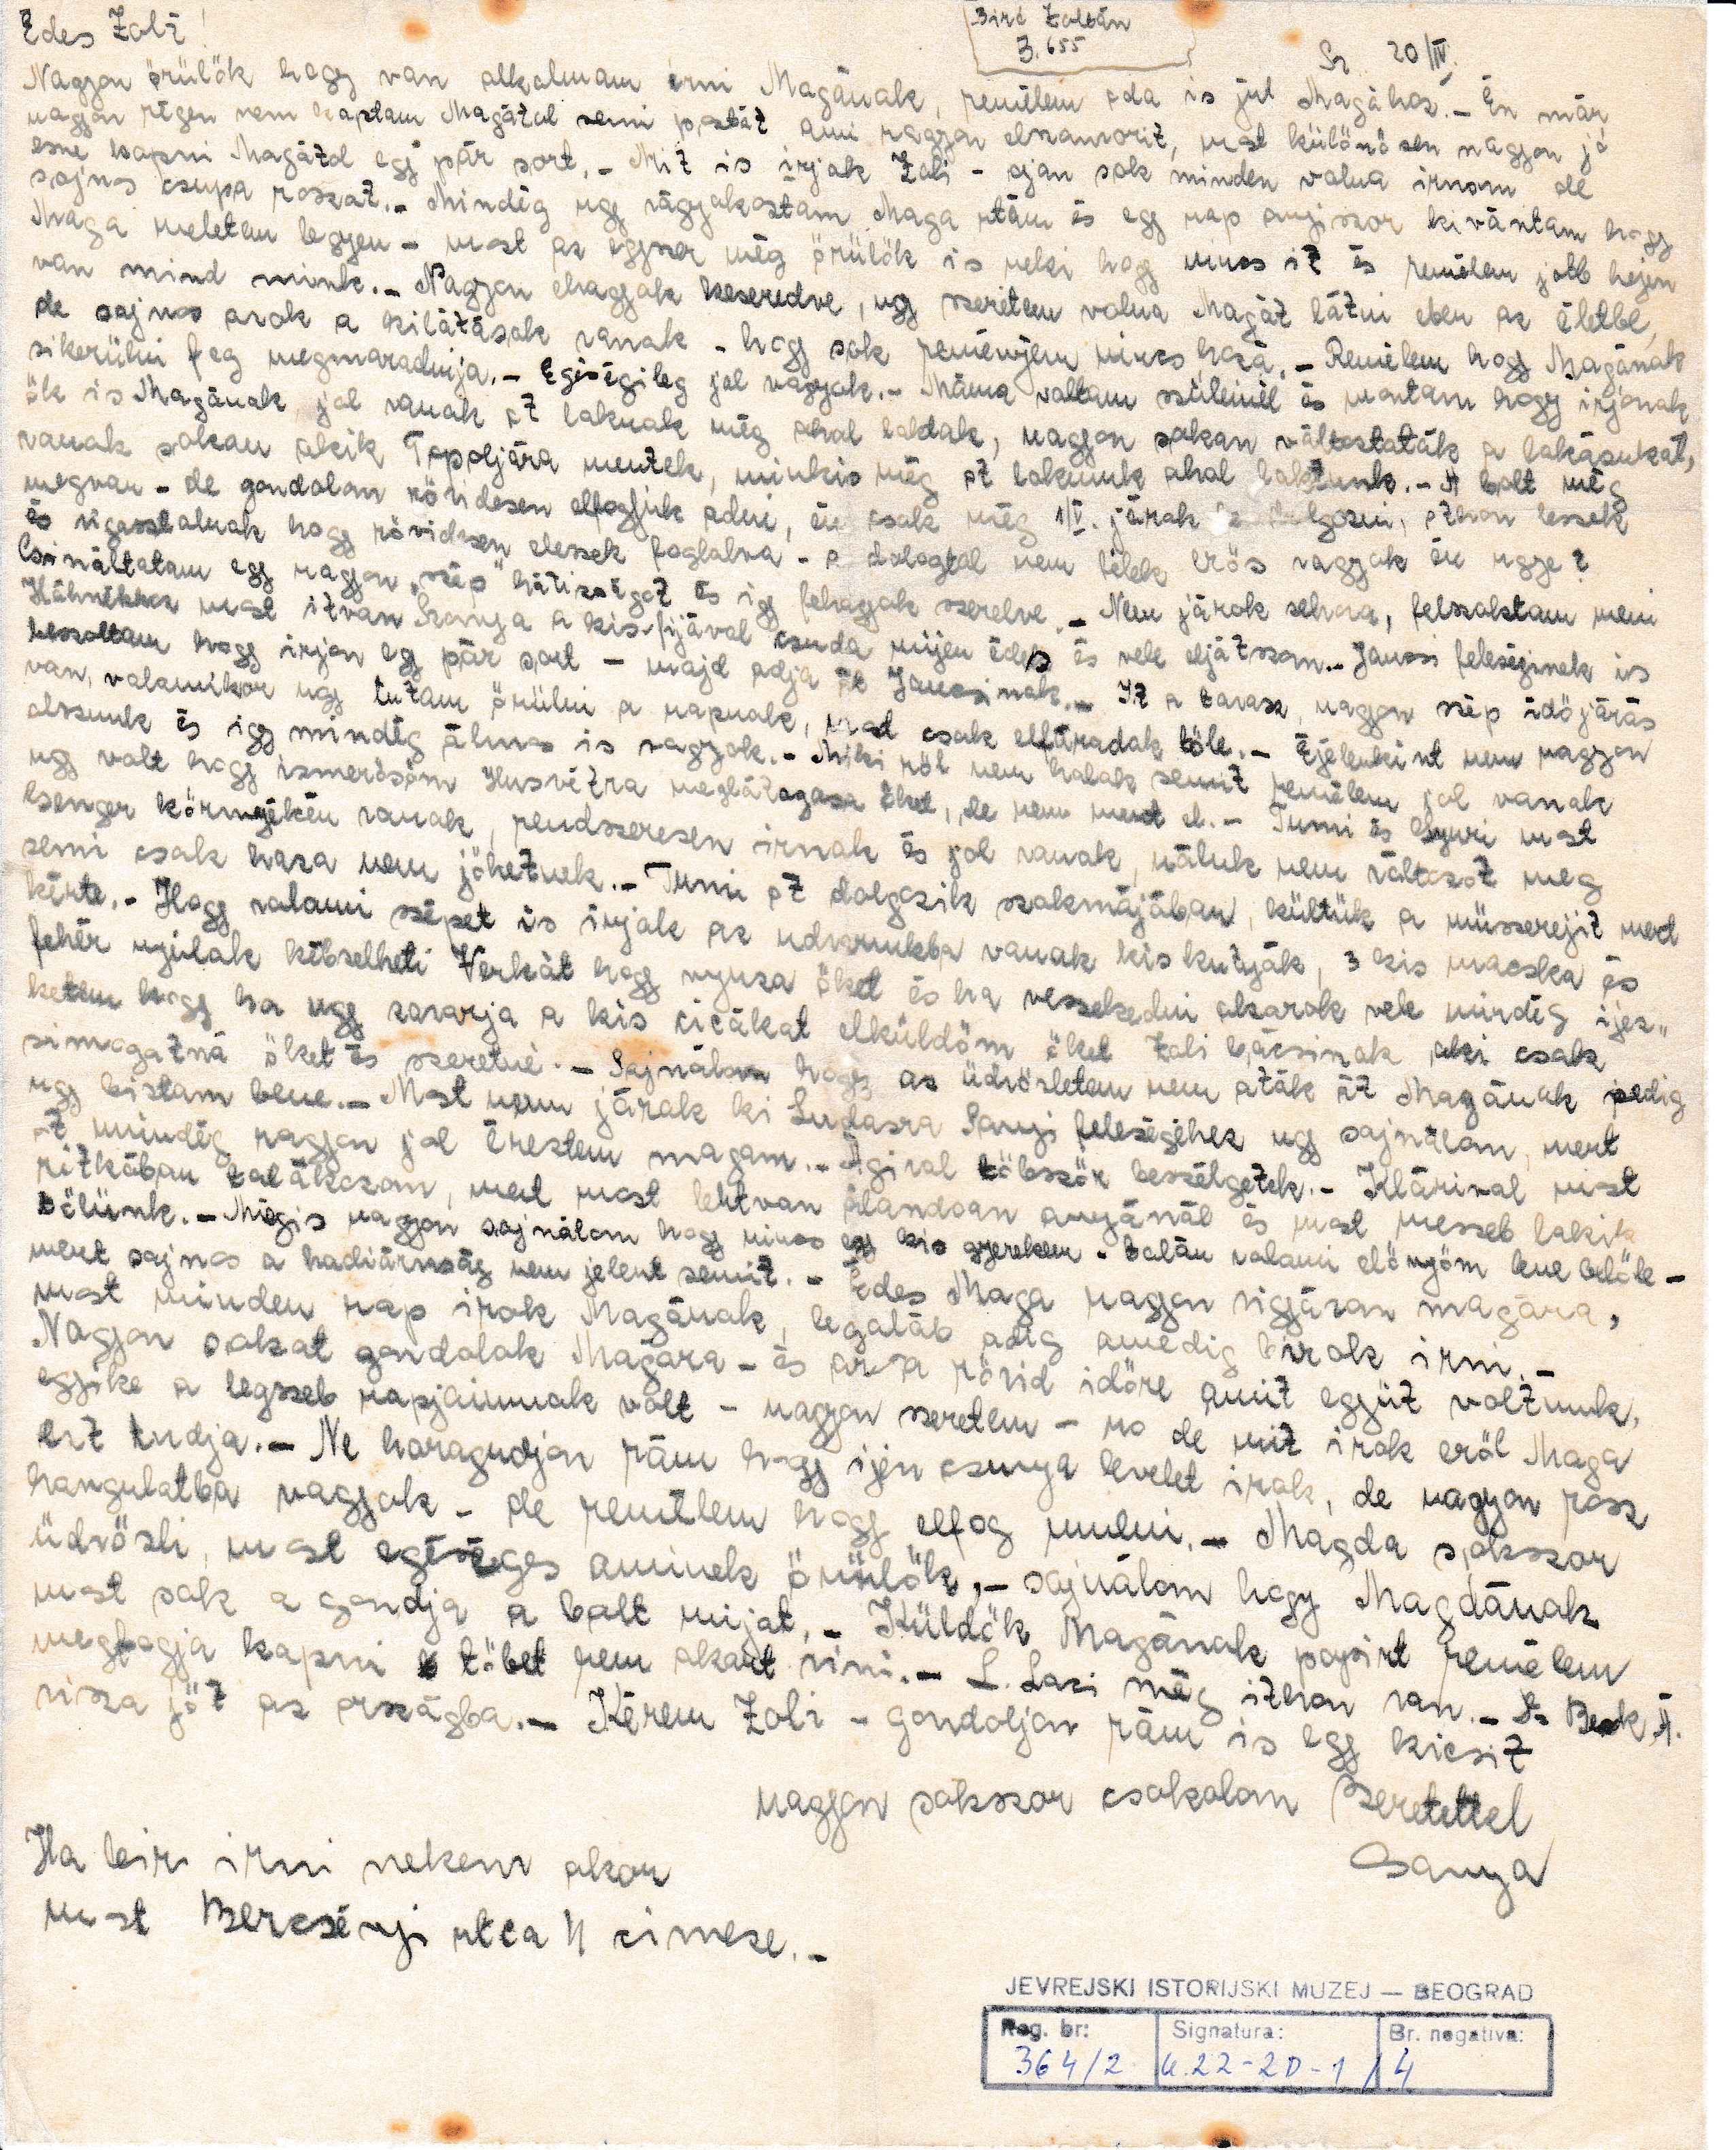 Édes Zoli!
Biró Zoltán
3.655
Sz 20/IV.
Nagyon örülök hogy van alkalmam irni Magának, remélem oda is jut Magához. - Én már
nagyon régen nem kaptam Magátol semi postát ami nagyon elszamorit, most különösen nagyon jó
esne kapni Magátol egy pár sort. - Mit is irjak Zoli - ojan sok minden volna irnom de
sajnos csupa rosszat. - Mindég ugy vágyakoztam Maga után és egy nap anyiszor kivántam hogy
Maga meletem legyen - most az egyszer még örülök is neki hogy nincs it és remélem jobb hejen
van mind mink. - Nagyon elvagyok keseredve, ugy szeretem volna Magát látni eben az életbe,
de sajnos azok a kilátások vanak - hogy sok reményem nincs hozá. - Remélem hogy Magának
sikerülni fog megmaradnija. - Egéségileg jol vagyok. - Máma voltam szüleinél és montam hogy irjanak
ök is Magának, jol vanak ot laknak még ahol laktak, nagyon sokan változtaták a lakásukat,
vanak sokan akik Topoljára mentek, minkis még ot lakunk ahol laktunk. - A bolt még
megvan - de gondolom rövidesen elfogjuk adni, én csak még 1/V. járok dolgozni, othon leszek
és vigasztalnak hogy rövidesen eleszek foglalva - a dologtol nem félek erös vagyok én ugye?
Csináltatam egy nagyon "szép" hátizságot és igy felvagyok szerelve. - Nem járok sehova, felszoktam meni
Hahnékhoz most itvan Szonya a kis fijával csuda mijen édes és vele eljátszom. - Jancsi feleséginek is
leszoltam hogy irjon egy pár sort - majd adja át Jancsinak. - It a tavasz, nagyon szép idöjárás
van, valamikor ugy tutam örülni a napnak, most csak elfáradok töle. - Éjelenkint nem nagyon
alszunk és igy mindég álmos is vagyok. - Miki röl nem halok semit remélem jol vanak
ugy volt hogy ismerösöm Husvétra meglátogasa öket, de nem ment el. - Tumi és Gyuri most
Csenger környékén vanak, rendszeresen irnak és jol vanak, náluk nem változot meg
semi csak haza nem jöhetnek. - Tumi ot dolgozik szakmájában, kültük a müszerejit mert
kérte. - Hogy valami szépet is irjak az udvarunkba vanak kis kutyák, 3 kis macska és
fehér nyulak képzelheti Verkát hogy nyuza öket és ha veszekedni akarok vele mindég ijez"
ketem hogy ha ugy zavarja a kis cicákat elküldöm öket Zoli bácsinak aki csak
simogatná öket és szeretné. - Sajnálom hogy az üdvözletem nem aták át Magának pedig
ugy bistam bene. - Most nem járok ki Ludasra Sanyi feleségéhez ugy sajnálom, mert
ot mindég nagyon jol éreztem magam. - Ágival töbször beszélgetek. - Klárival most
ritkában találkozom, mert most lehtvan álandoan anyánál és most meszeb lakik
tölünk. - Mégis nagyon sajnálom hogy nincs egy kis gyerekem - talán valami elönyöm lene belöle -
mert sajnos a hadiárvaság nem jelent semit. - Édes Maga nagyon vigyázon magára,
most minden nap irok Magának, legaláb adig amedig birok irni. -
Nagyon sokat gondolok Magára - és ara a rövid idöre amit együt voltunk,
egyike a legszeb napjaimnak volt - nagyon szeretem - no de mit irok eröl Maga
ezt tudja. - Ne haragudjon rám hogy ijen csunya levelet irok, de nagyon rosz
hangulatba vagyok - de remélem hogy elfog mulni. - Magda sokszor
üdvözli, most egéséges aminek örülök, - sajnálom hogy Magdának
most sok a gondja a bolt mijat. - Küldök Magának papirt remélem
megfogja kapni töbet nem akart vini. - L. Laci még ithon van. - Beck A.
visza jöt az országba. - Kérem Zoli - gondoljon rám is egy kicsit
nagyon sokszor csokolom Szeretettel
Sanya
Ha bir irni nekem akor
most Bercsényi utca 11 cimese. -
JEVREJSKI ISTORIJSKI MUZEJ — BEOGRAD
Reg. br: Signatura: Br. negativa:
364/2 k.22-2D-1/4